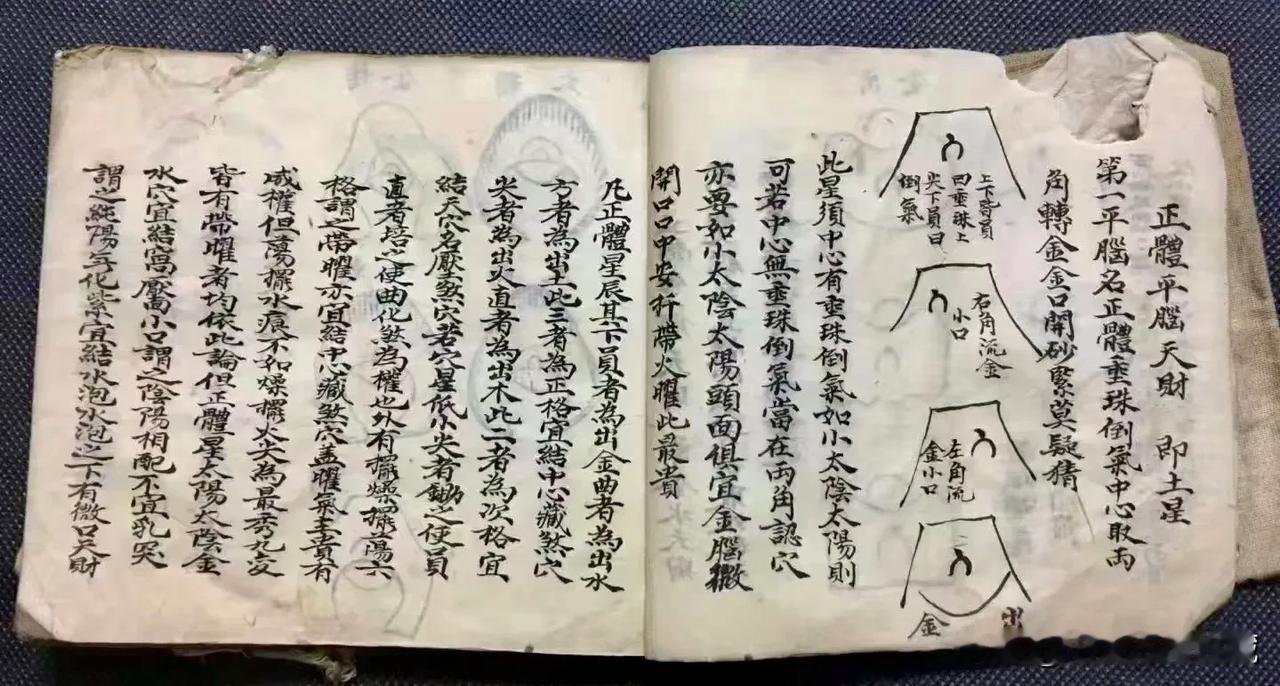 正體平腦天財 即土星
第一平腦名正體垂珠倒氣中心取兩
角轉金金口開砂緊莫疑猜
上下皆員
四垂珠上
尖下員曰
倒氣
右角流金
小口
左角流
金小口
出
金
此星須中心有垂珠倒氣如小太陰太陽則
可若中心無垂珠倒氣當在兩角認穴
亦要如小太陰太陽頭面俱宜金腦微
開口口中安扦帶火曜此最貴
凡正體星辰其下員者為出金曲者為出水
方者為出土此三者為正格宜結中心藏煞穴
尖者為出火直者為出木此二者為次格宜
結天穴名壓煞穴若穴星低小尖者鋤之使員
直者培之使曲化煞為權也外有擺燥擺蕩六
格謂之帶曜亦宜結中心藏煞穴盖曜氣主貴有
威權但蕩擺水痕不如燥擺火尖為最秀九変
皆有帶曜者均依此論但正體星太陽太陰金
水穴宜結窩靨小口謂之陰陽相配不宜乳突
謂之純陽不化紫宜結水泡水泡之下有微口天財